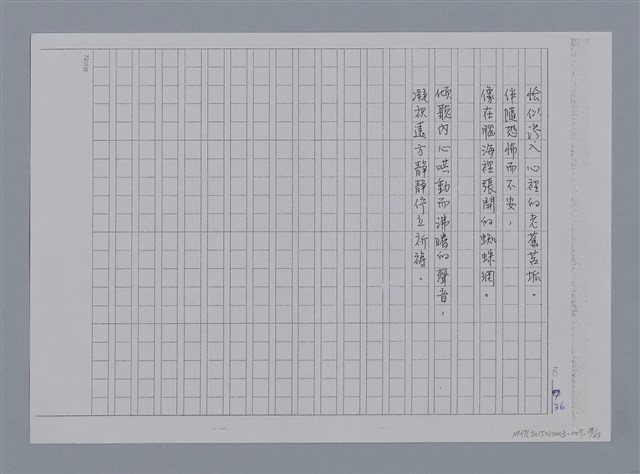 恰似滲入心裡的老舊苔垢。
伴隨恐怖而不安，
像在腦海裡張開的蜘蛛網。
傾聽內心哄動而沸騰的聲音，
凝視遠方靜靜佇立祈禱。
36